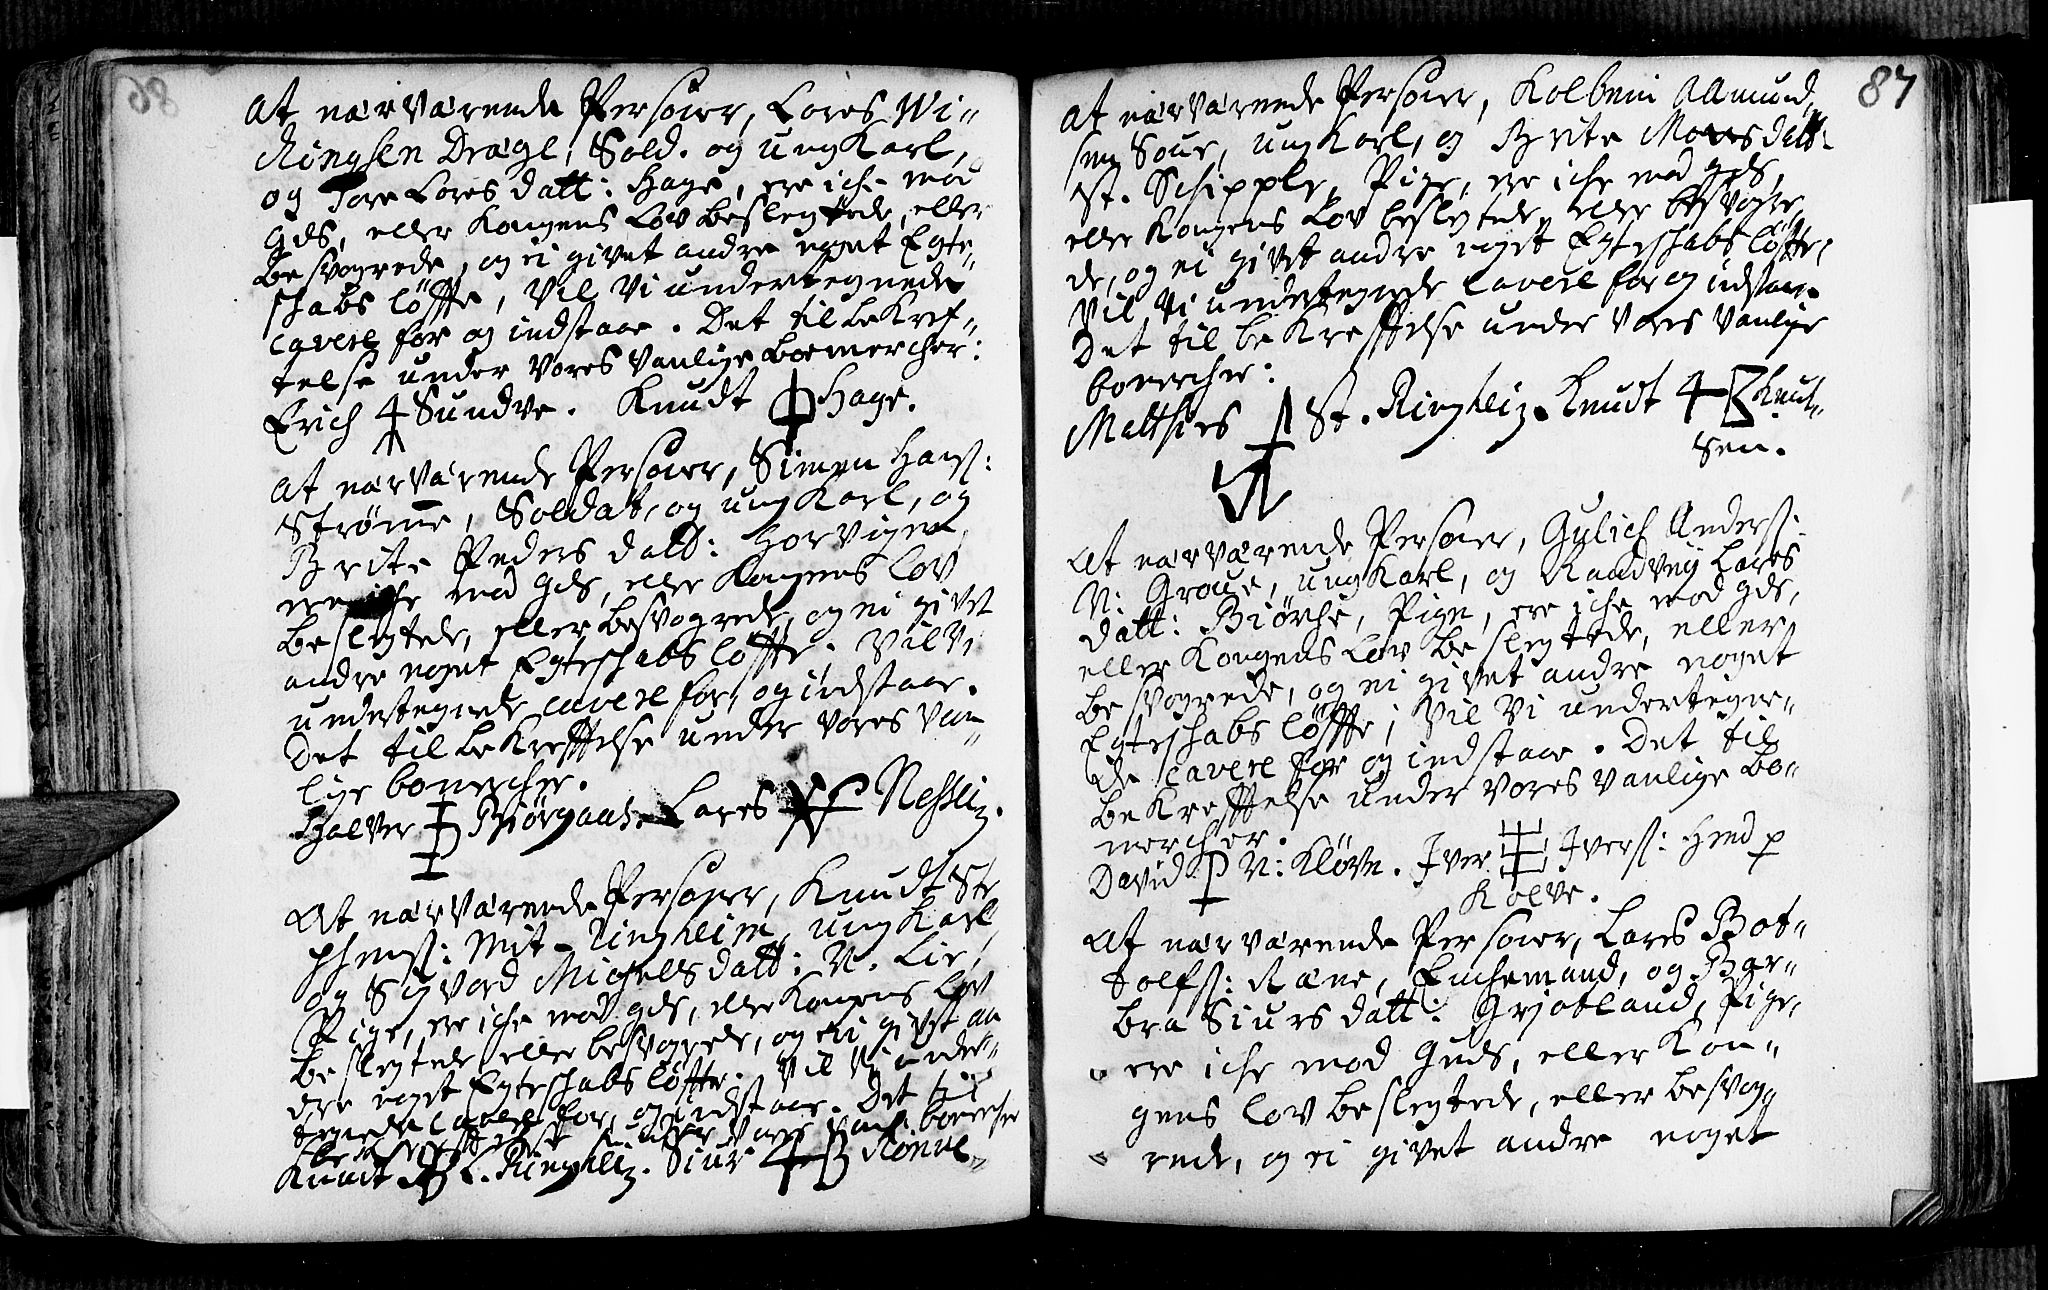 At nærværende Personer, Lares Wi-
Kingsen Drægl, Sold. og ung Karl,
og Tore Lares datt: Hage, ere iche mod
Gds, eller Kongens Lov beslegtede, eller
besvogrede, og ei givet andre noget Egte-
schabs løffte, Vil Vi undertegnede
cavere for og indstaae. Det til bekref-
telse under Vores Vanlige boemercher:
Erich Sundve. Knudt Hage.
At nærværende Personer, Simen Hanss:
Strømme, Soldat, og ung Karl, og
Brite Peders datt: Horvigen
ere iche mod Gds, eller Kongens Lov
beslegtede, eller besvogrede, og ei givet
andre noget Egteschabs løffte. Vil Vi
undertegnede cavere for, og indstaae.
Det til bekreffttelse under Vores Van-
lige bomercher.
Halver Biørgaas. Lares Nesheim.
At nærværende Personer, Knudt Ste
phens: Mit-Ringheim, ung Karl,
og Sigvord Michels datt: N. Lie,
Pige, ere iche mod Gds, eller Kongens Lov
beslegtede eller besvogrede, og ei givet an
dre noget Egteschabs løffte. Vil Vi under-
tegnede cavere for, og indstaae. Det til
bekreffttelse under Vores Vanl: bomercher
Knudt L. Ringheim. Siur Rønne
87
At nærværende Personer, Kolbein Aamund,
sen Soue, ung Karl, og Brite Mons datt:
St. Schipple, Pige, ere iche mod Gds,
eller Kongens Lov beslegtede, eller besvogre
de, og ei givet andre noget Egteschabs løffte,
Vil Vi undertegnede cavere for og indstaae.
Det til bekreffttelse under Vores Vanlige
bomercher:
Matthies St. Ringheim. Knudt Knut-
sen.
At nærværende Personer, Gulich Anderss:
N: Groue, ung Karl, og Randveig Lares
datt: Biørche, Pige, ere iche mod Gds,
eller Kongens Lov beslegtede, eller
besvogrede, og ei givet andre noget
Egteschabs løffte; Vil Vi undertegne-
de cavere for og indstaae. Det til
bekreffttelse under Vores Vanlige bo-
mercher.
David N: Kløve. Iver Iverss: Hmd p
Kolve.
At nærværende Personer, Lares Bot-
tolfs: Ræne, Enchemand, og Bar-
bra Siurs datt: Grjotland, Pige,
ere iche mod Guds, eller Kon-
gens Lov beslegtede, eller besvog-
rede, og ei givet andre noget